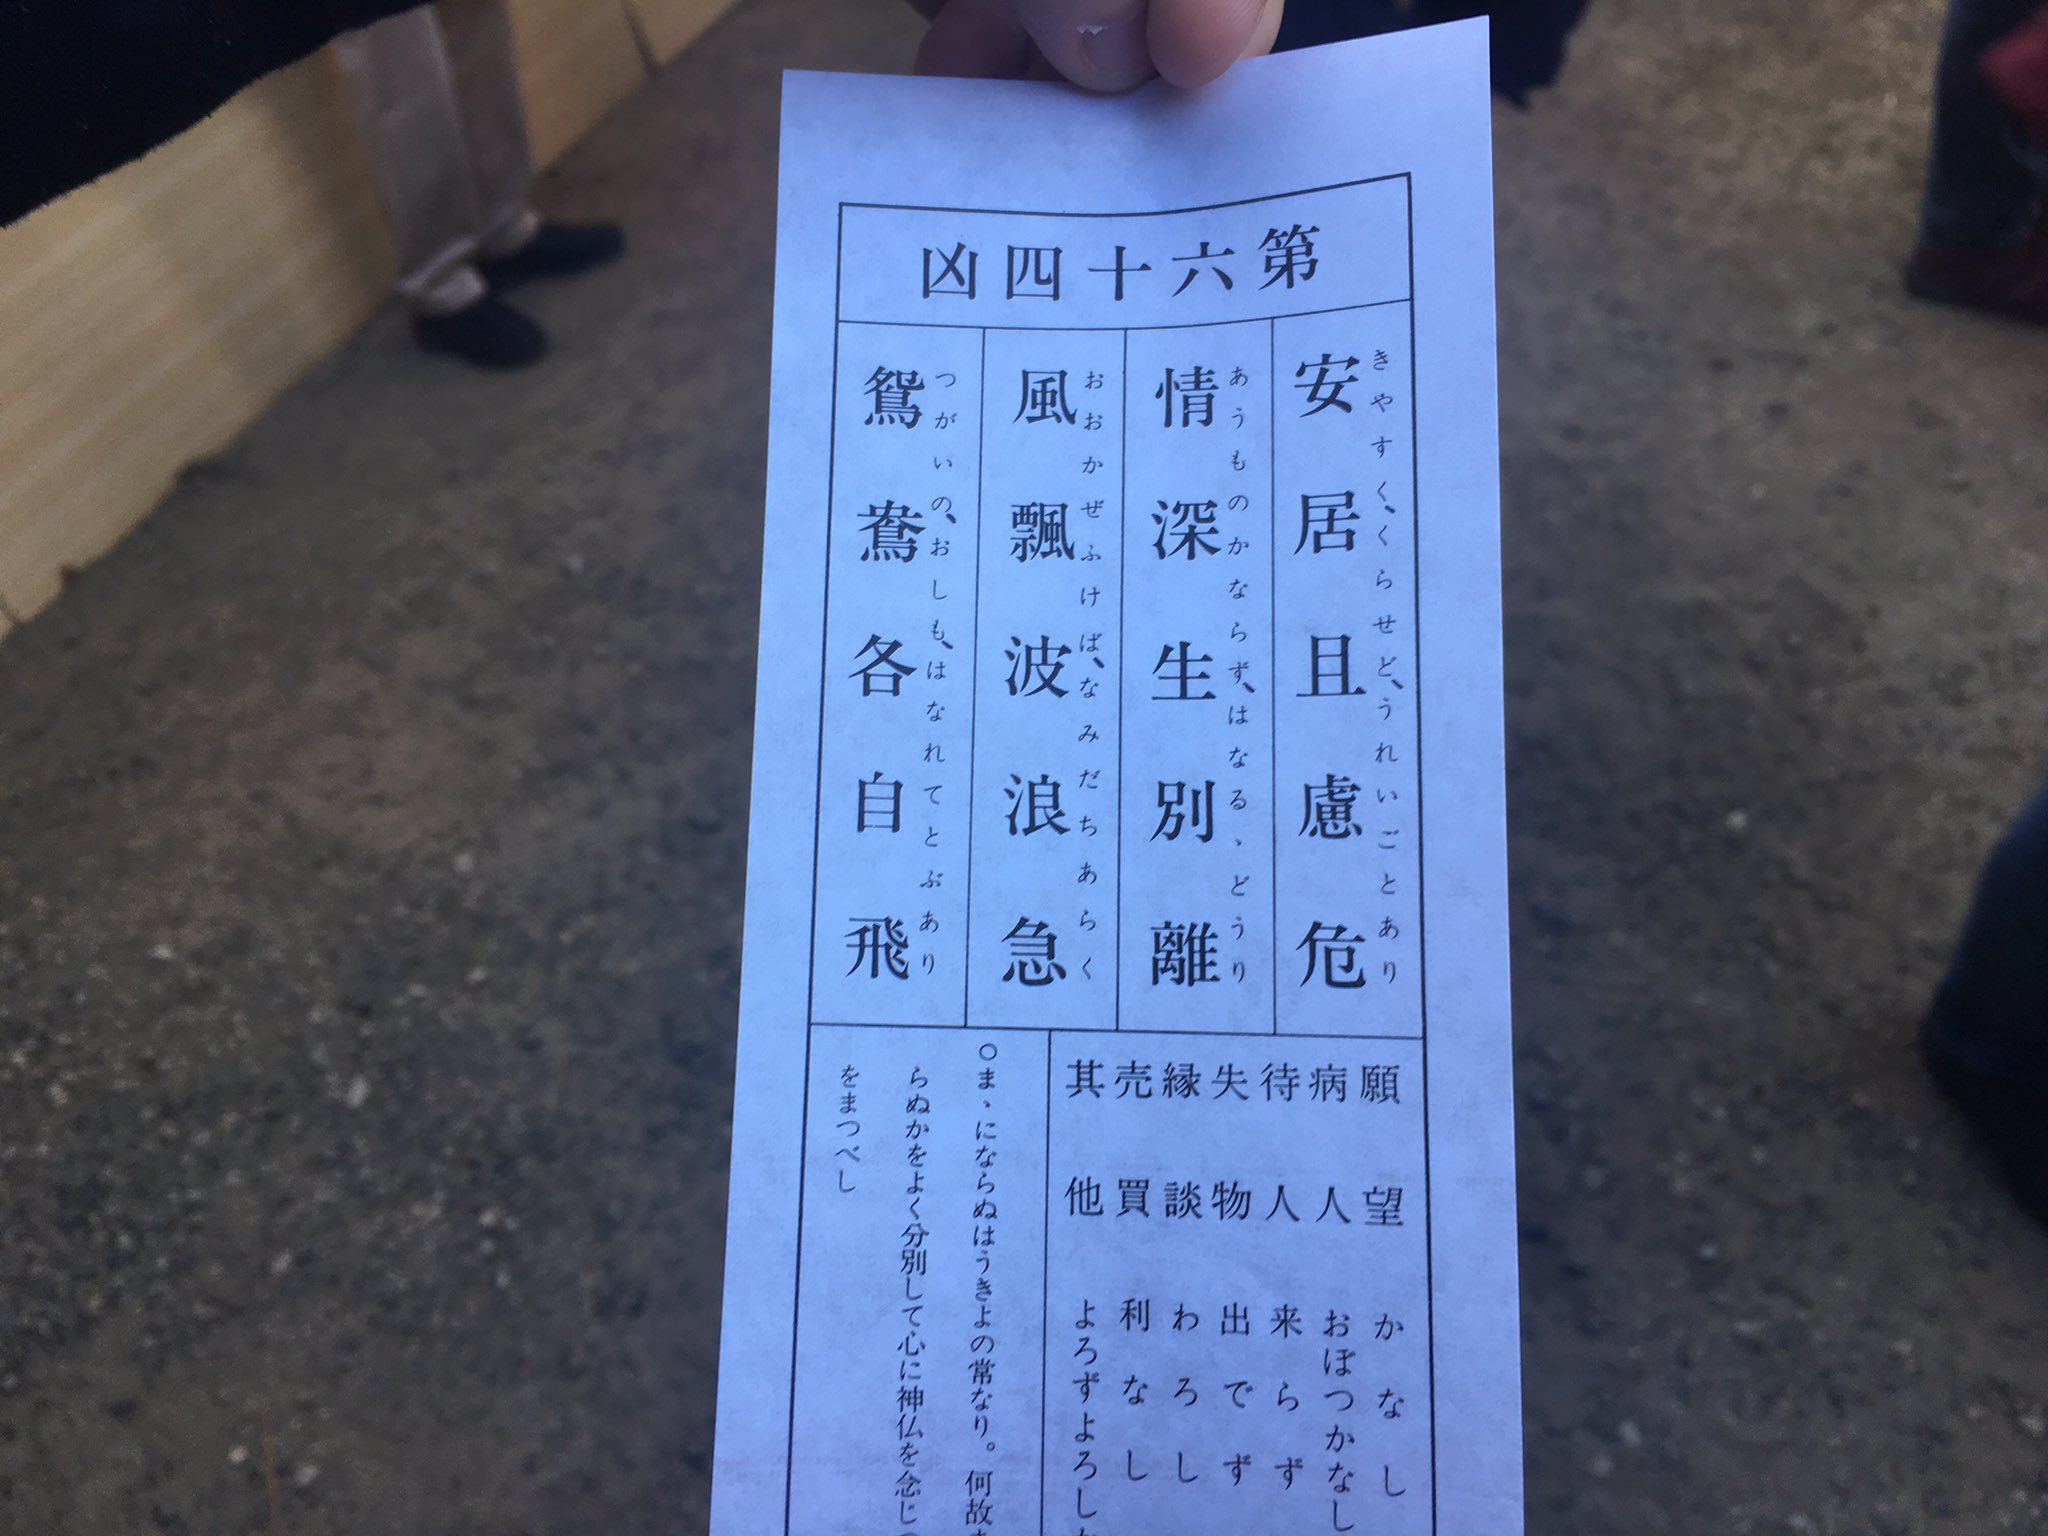 第六十四凶
安居且慮危
きやすく、くらせど、うれいごとあり
情深生別離
あうものかならず、はなるゝどうり
風飄波浪急
おおかぜふけば、なみだちあらく
鴛鴦各自飛
つがいの、おしも、はなれてとぶあり
願望 かなし
病人 おぼつかなし
待人 来らず
失物 出でず
縁談 わろし
売買 利なし
其他 よろずよろし
○まゝにならぬはうきよの常なり。何故
らぬかをよく分別して心に神仏を念じ
をまつべし